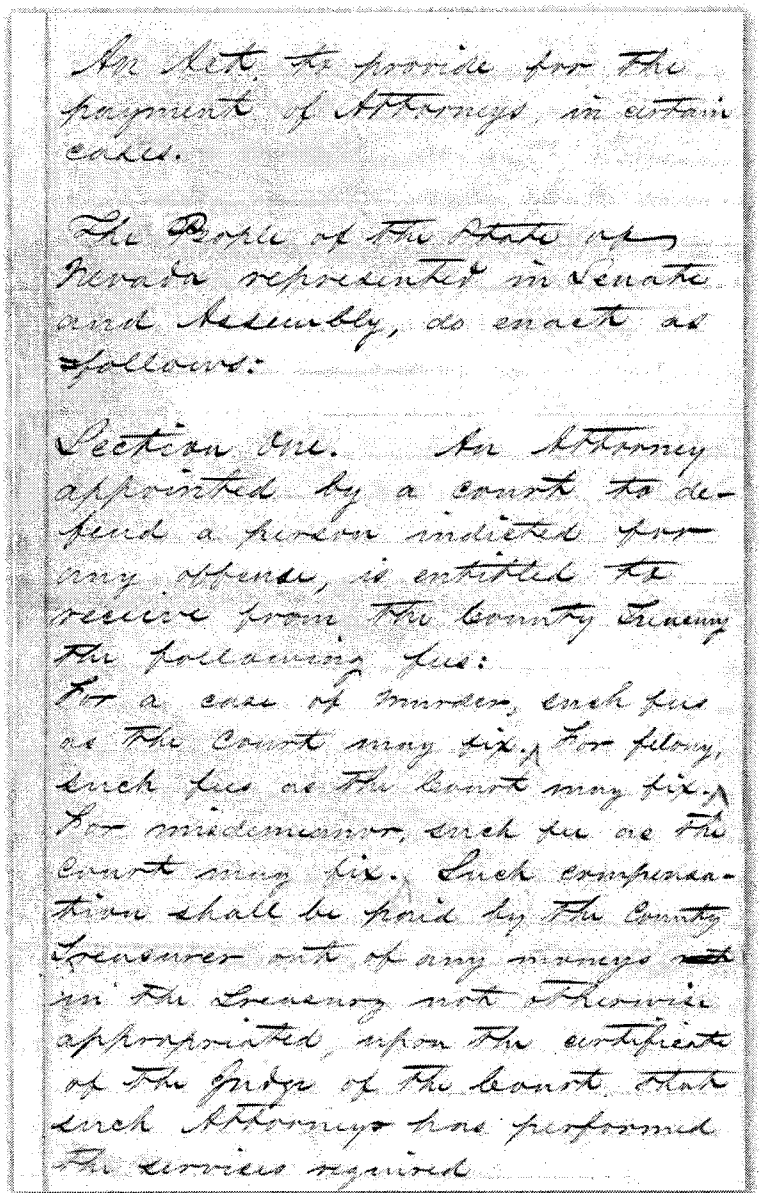 An Act, to provide for the
payment of Attorneys, in certain
cases.
The People of the State of
Nevada represented in Senate
and Assembly, do enact as
follows:
Section One. An Attorney
appointed by a court to de-
fend a person indicted for
any offense, is entitled to
receive from the County Treasury
the following fees:
For a case of murder, such fees
as the Court may fix. For felony,
such fees as the Court may fix.
For misdemeanor, such fee as the
Court may fix. Such compensa-
tion shall be paid by the County
Treasurer out of any moneys
in the Treasury not otherwise
appropriated, upon the certificate
of the Judge of the Court, that
such Attorneys has performed
the services required